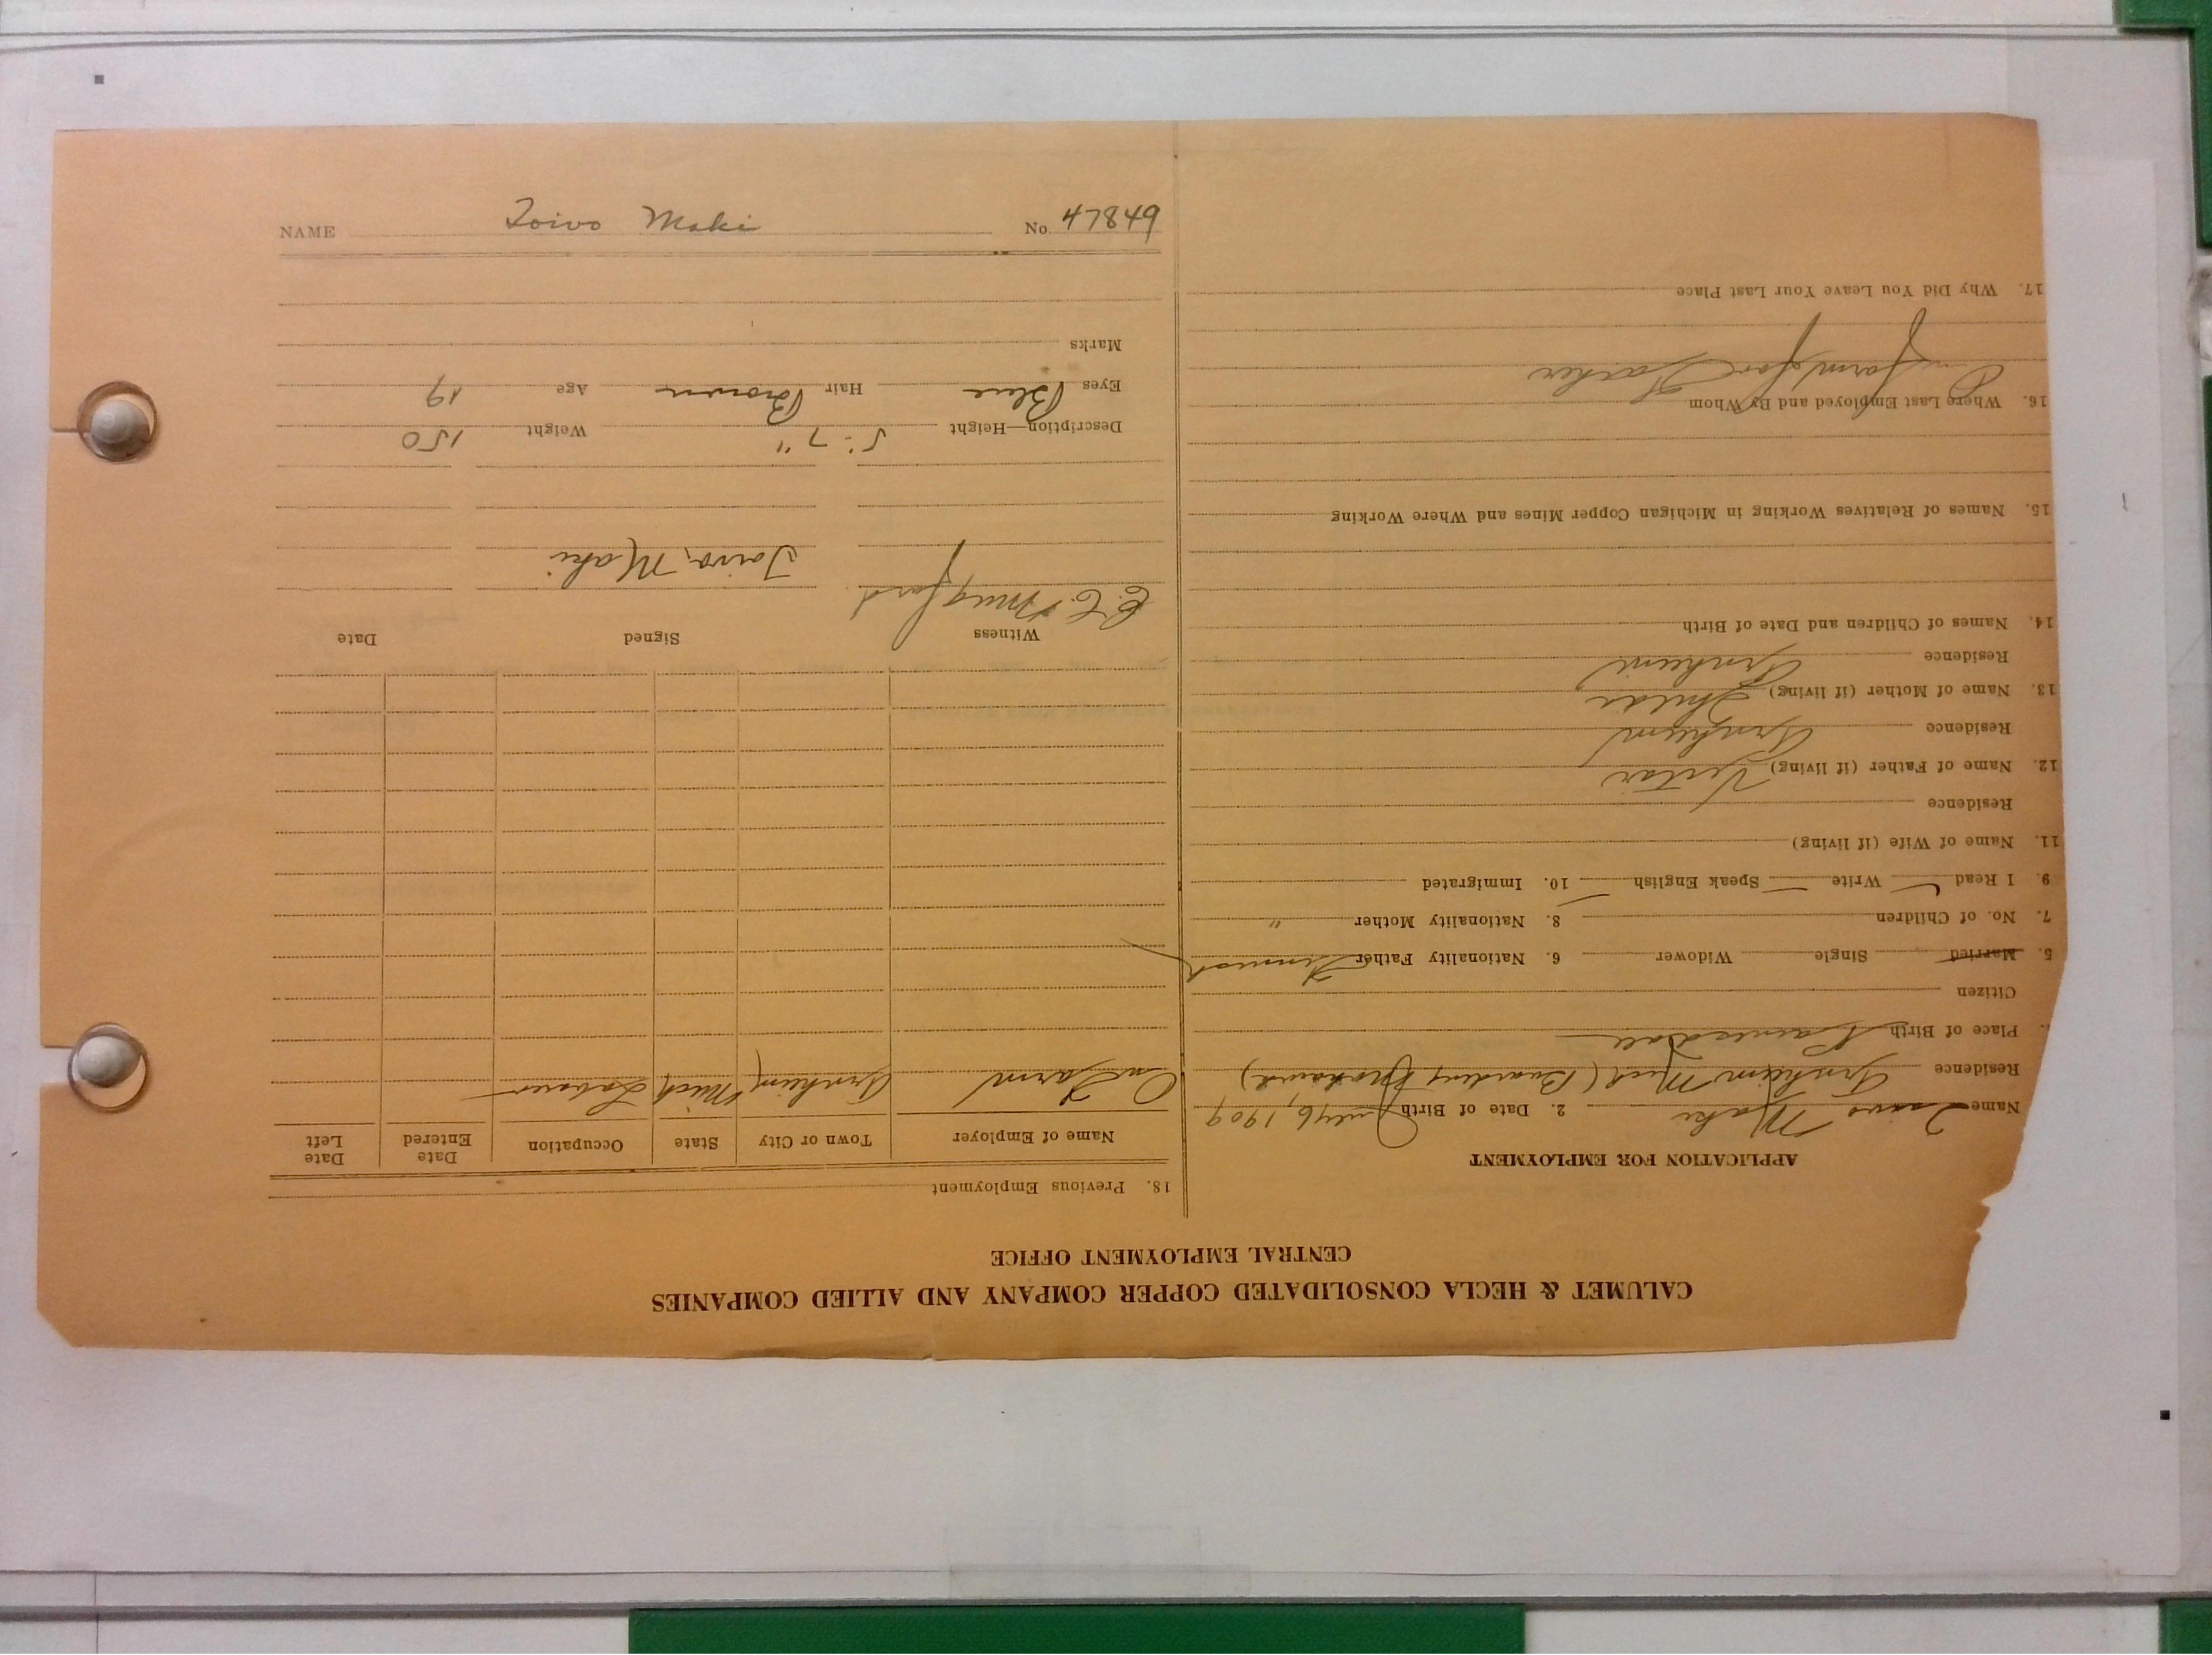 CALUMET & HECLA CONSOLIDATED COPPER COMPANY AND ALLIED COMPANIES
CENTRAL EMPLOYMENT OFFICE
APPLICATION FOR EMPLOYMENT
Name Toivo Maki 2. Date of Birth July 6, 1909
Residence Arnheim Mich (Boarding
Place of Birth Painesdale
Citizen
5. Married Single Widower 6. Nationality Father Finnish
7. No. of Children 8. Nationality Mother "
9. I Read Write Speak English 10. Immigrated
11. Name of Wife (if living)
Residence
12. Name of Father (if living) Victor
Residence Arnheim
13. Name of Mother (if living) Hilda
Residence Arnheim
14. Names of Children and Date of Birth
15. Names of Relatives Working in Michigan Copper Mines and Where Working
16. Where Last Employed and By Whom
On farm for Father
17. Why Did You Leave Your Last Place
18. Previous Employment
Name of Employer Town or City State Occupation Date Entered Date Left
On Farm Arnheim Mich Laborer
Witness Signed Date
C.C. Mugford Toivo Maki
Description—Height 5'-7" Weight 150
Eyes Blue Hair Brown Age 19
Marks
NAME Toivo Maki No. 47849